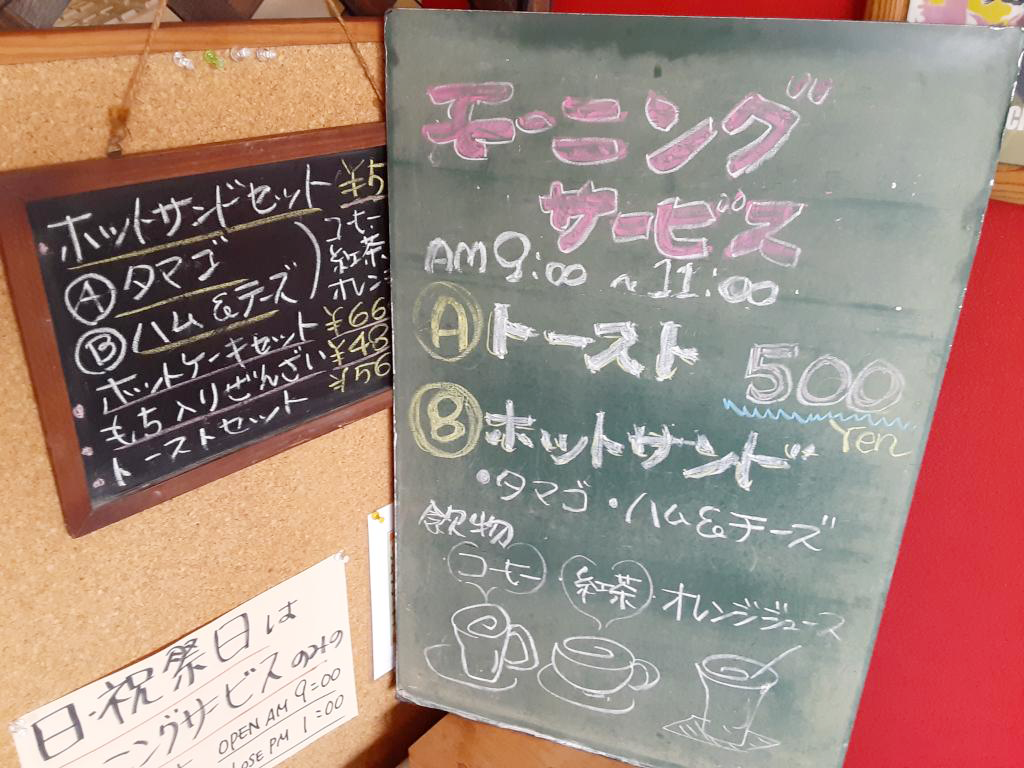 ホットサンドセット ¥5
Ⓐタマゴ
Ⓑハム&チーズ
コーヒー
紅茶
オレンジ
ホットケーキセット ¥66
もち入りぜんざい ¥48
トーストセット ¥56
モーニング
サービス
AM9:00 ~11:00
Ⓐトースト
500
Yen
Ⓑホットサンド
・タマゴ・ハム&チーズ
飲物
コーヒー 紅茶 オレンジジュース
日・祝祭日は
ニングサービスのみの
OPEN AM 9:00
LOSE PM 1:00